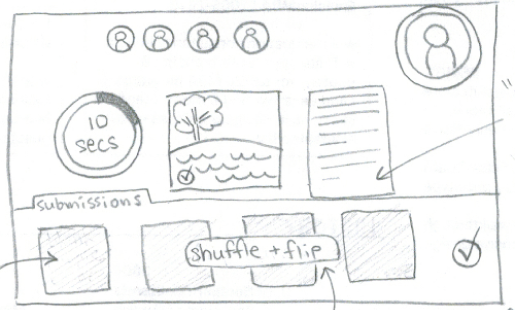 10
secs
submissions
shuffle + flip
"